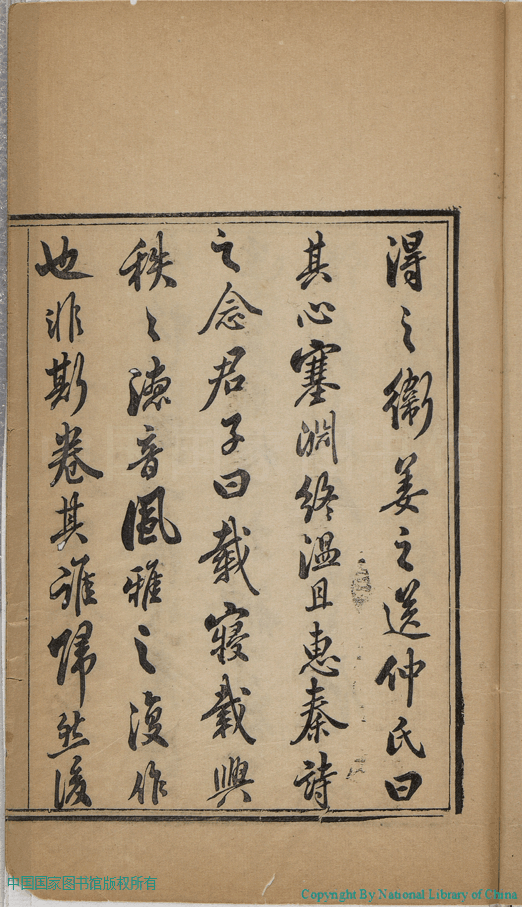 得之衞姜之送仲氏曰
其心塞淵終溫且惠秦詩
之念君子曰載寢載興
秩〻德音風雅之復作
也非斯卷其誰歸然後
中国国家图书馆版权所有
Copyright By National Library of China